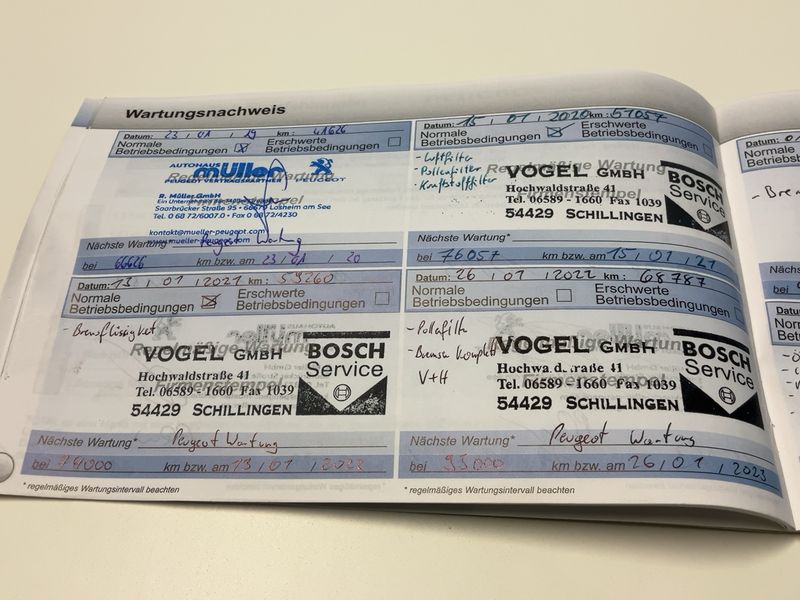 Wartungsnachweis
Datum: 23 / 01 / 19 km : 41626
Normale Betriebsbedingungen ☒ Erschwerte Betriebsbedingungen ☐
AUTOHAUS
müller
PEUGEOT VERTRAGSPARTNER PEUGEOT
R. Müller GmbH
Saarbrücker Straße 95 - 66679 Losheim am See
Tel. 0 68 72/6007.0 • Fax 0 6872/4230
kontakt@mueller-peugeot.com
www.mueller-peugeot.com
Nächste Wartung* Peugeot Wartung
bei 66626 km bzw. am 23 / 01 / 20
Datum: 15 / 01 / 2020 km : 51057
Normale Betriebsbedingungen ☒ Erschwerte Betriebsbedingungen ☐
- Luftfilter
- Pollenfilter
- Kraftstofffilter
Regelmäßige Wartung
Firmenstempel
VOGEL GMBH
Hochwaldstraße 41
Tel. 06589 - 1660 Fax 1039
54429 SCHILLINGEN
BOSCH
Service
Nächste Wartung*
bei 76057 km bzw. am 15 / 01 / 21
Datum: 13 / 01 / 2021 km : 59260
Normale Betriebsbedingungen ☒ Erschwerte Betriebsbedingungen ☐
- Bremflüssigkeit
Regelmäßige Wartung
Firmenstempel
VOGEL GMBH
Hochwaldstraße 41
Tel. 06589 - 1660 Fax 1039
54429 SCHILLINGEN
BOSCH
Service
Nächste Wartung* Peugeot Wartung
km bzw. am 13 / 01
* regelmäßiges Wartungsintervall beachten
Datum: 26 / 01 / 2022 km : 68787
Normale Betriebsbedingungen ☐ Erschwerte Betriebsbedingungen ☐
- Pollefilte
- Bremse komplett
V+H
VOGEL GMBH
Tel. 06589 - 1660 Fax 1039
54429 SCHILLINGEN
BOSCH
Service
Nächste Wartung* Peugeot Wartung
bei 93000 km bzw. am 26 / 01 / 2023
* regelmäßiges Wartungsintervall beachten